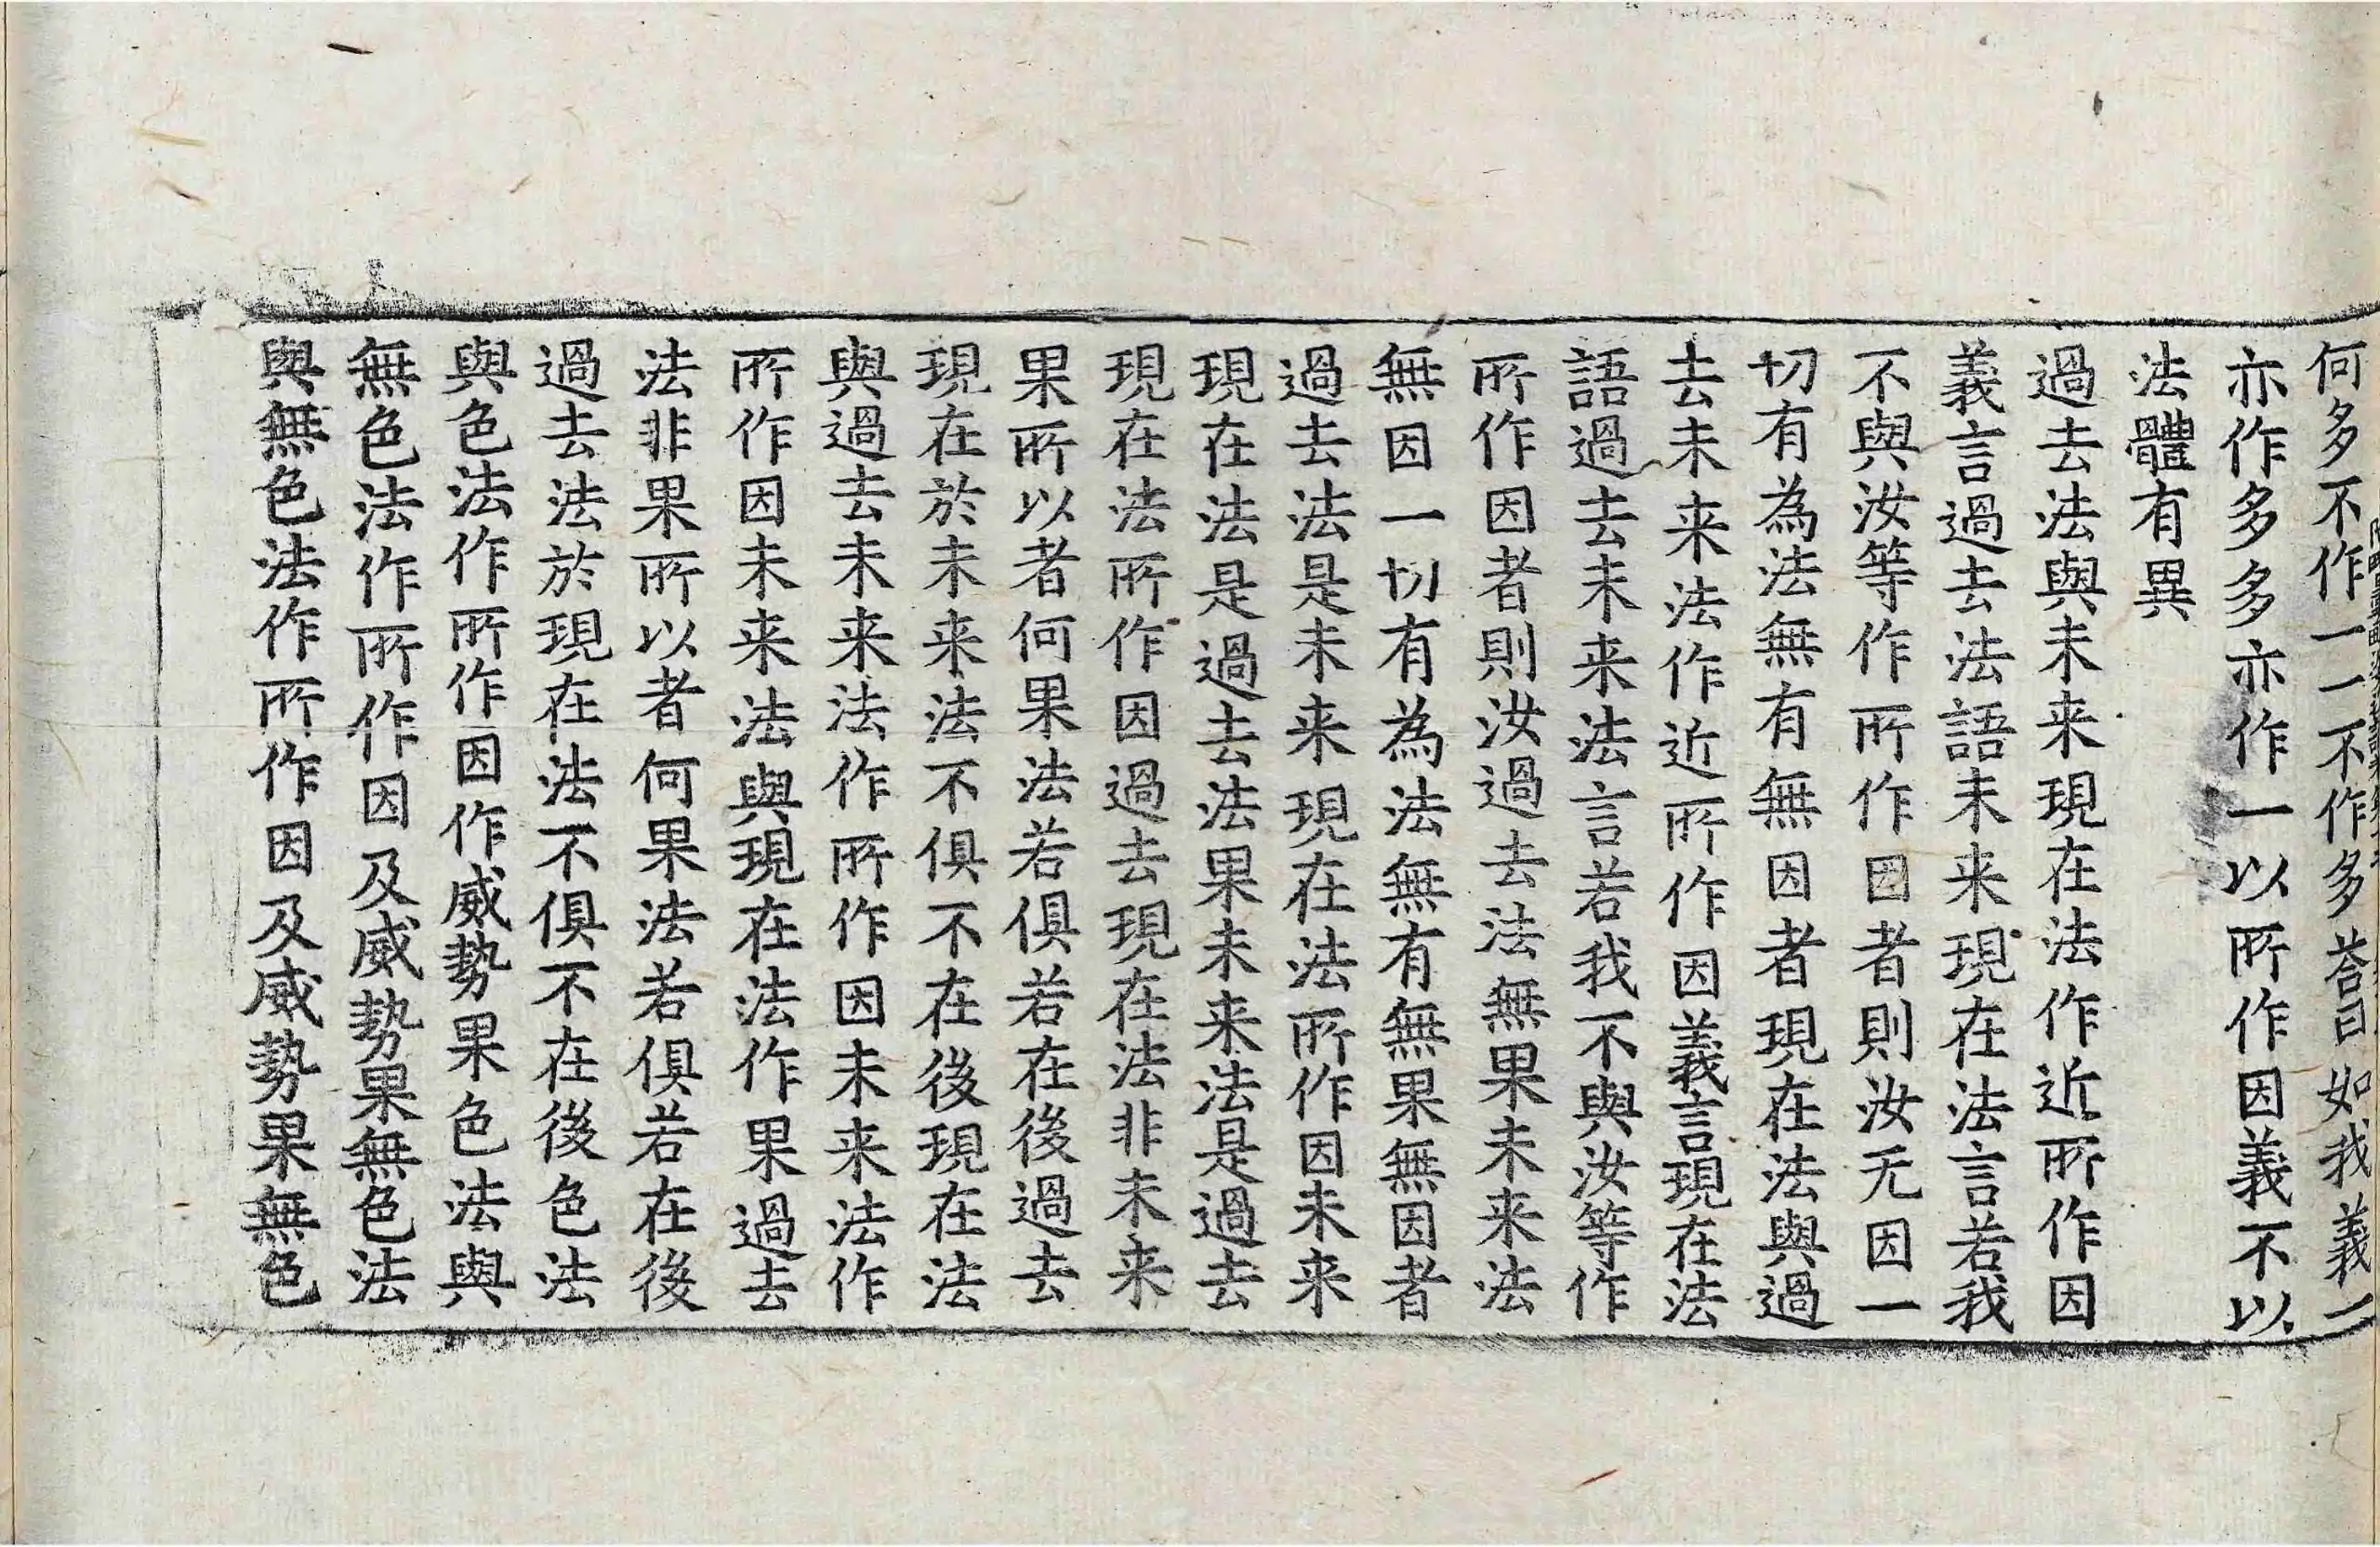 何多不作一一不作多荅曰如我義一
亦作多多亦作一以所作因義不以
法體有異
過去法與未来現在法作近所作因
義言過去法語未来現在法言若我
不與汝等作所作因者則汝无因一
切有為法無有無因者現在法與過
去未来法作近所作因義言現在法
語過去未来法言若我不與汝等作
所作因者則汝過去法無果未来法
無因一切有為法無有無果無因者
過去法是未来現在法所作因未来
現在法是過去法果未来法是過去
現在法所作因過去現在法非未来
果所以者何果法若俱若在後過去
現在於未来法不俱不在後現在法
與過去未来法作所作因未来法作
所作因未来法與現在法作果過去
法非果所以者何果法若俱若在後
過去法於現在法不俱不在後色法
與色法作所作因作威勢果色法與
無色法作所作因及威勢果無色法
與無色法作所作因及威勢果無色